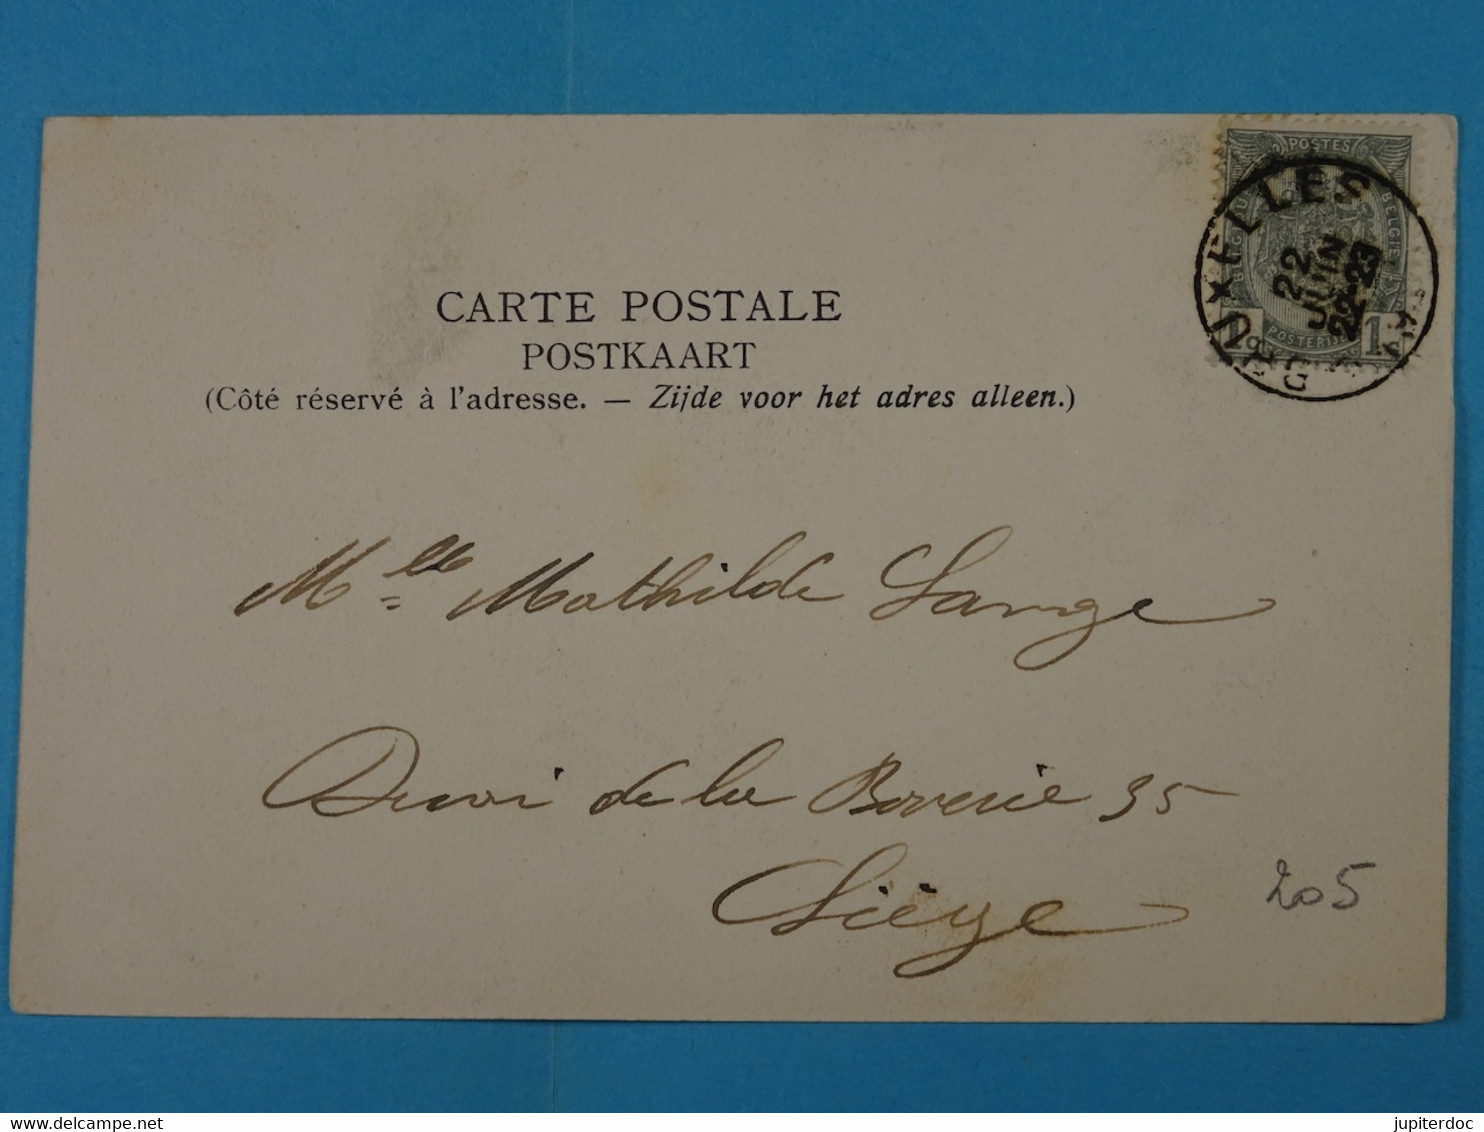 CARTE POSTALE
POSTKAART
(Côté réservé à l'adresse. — Zijde voor het adres alleen.)
POSTES
BELGIE
POSTERIJEN
1
22
JUIN
22-23
Mlle Mathilde Lange
Quai de la Boverie 35
Liège
205
jupiterdoc